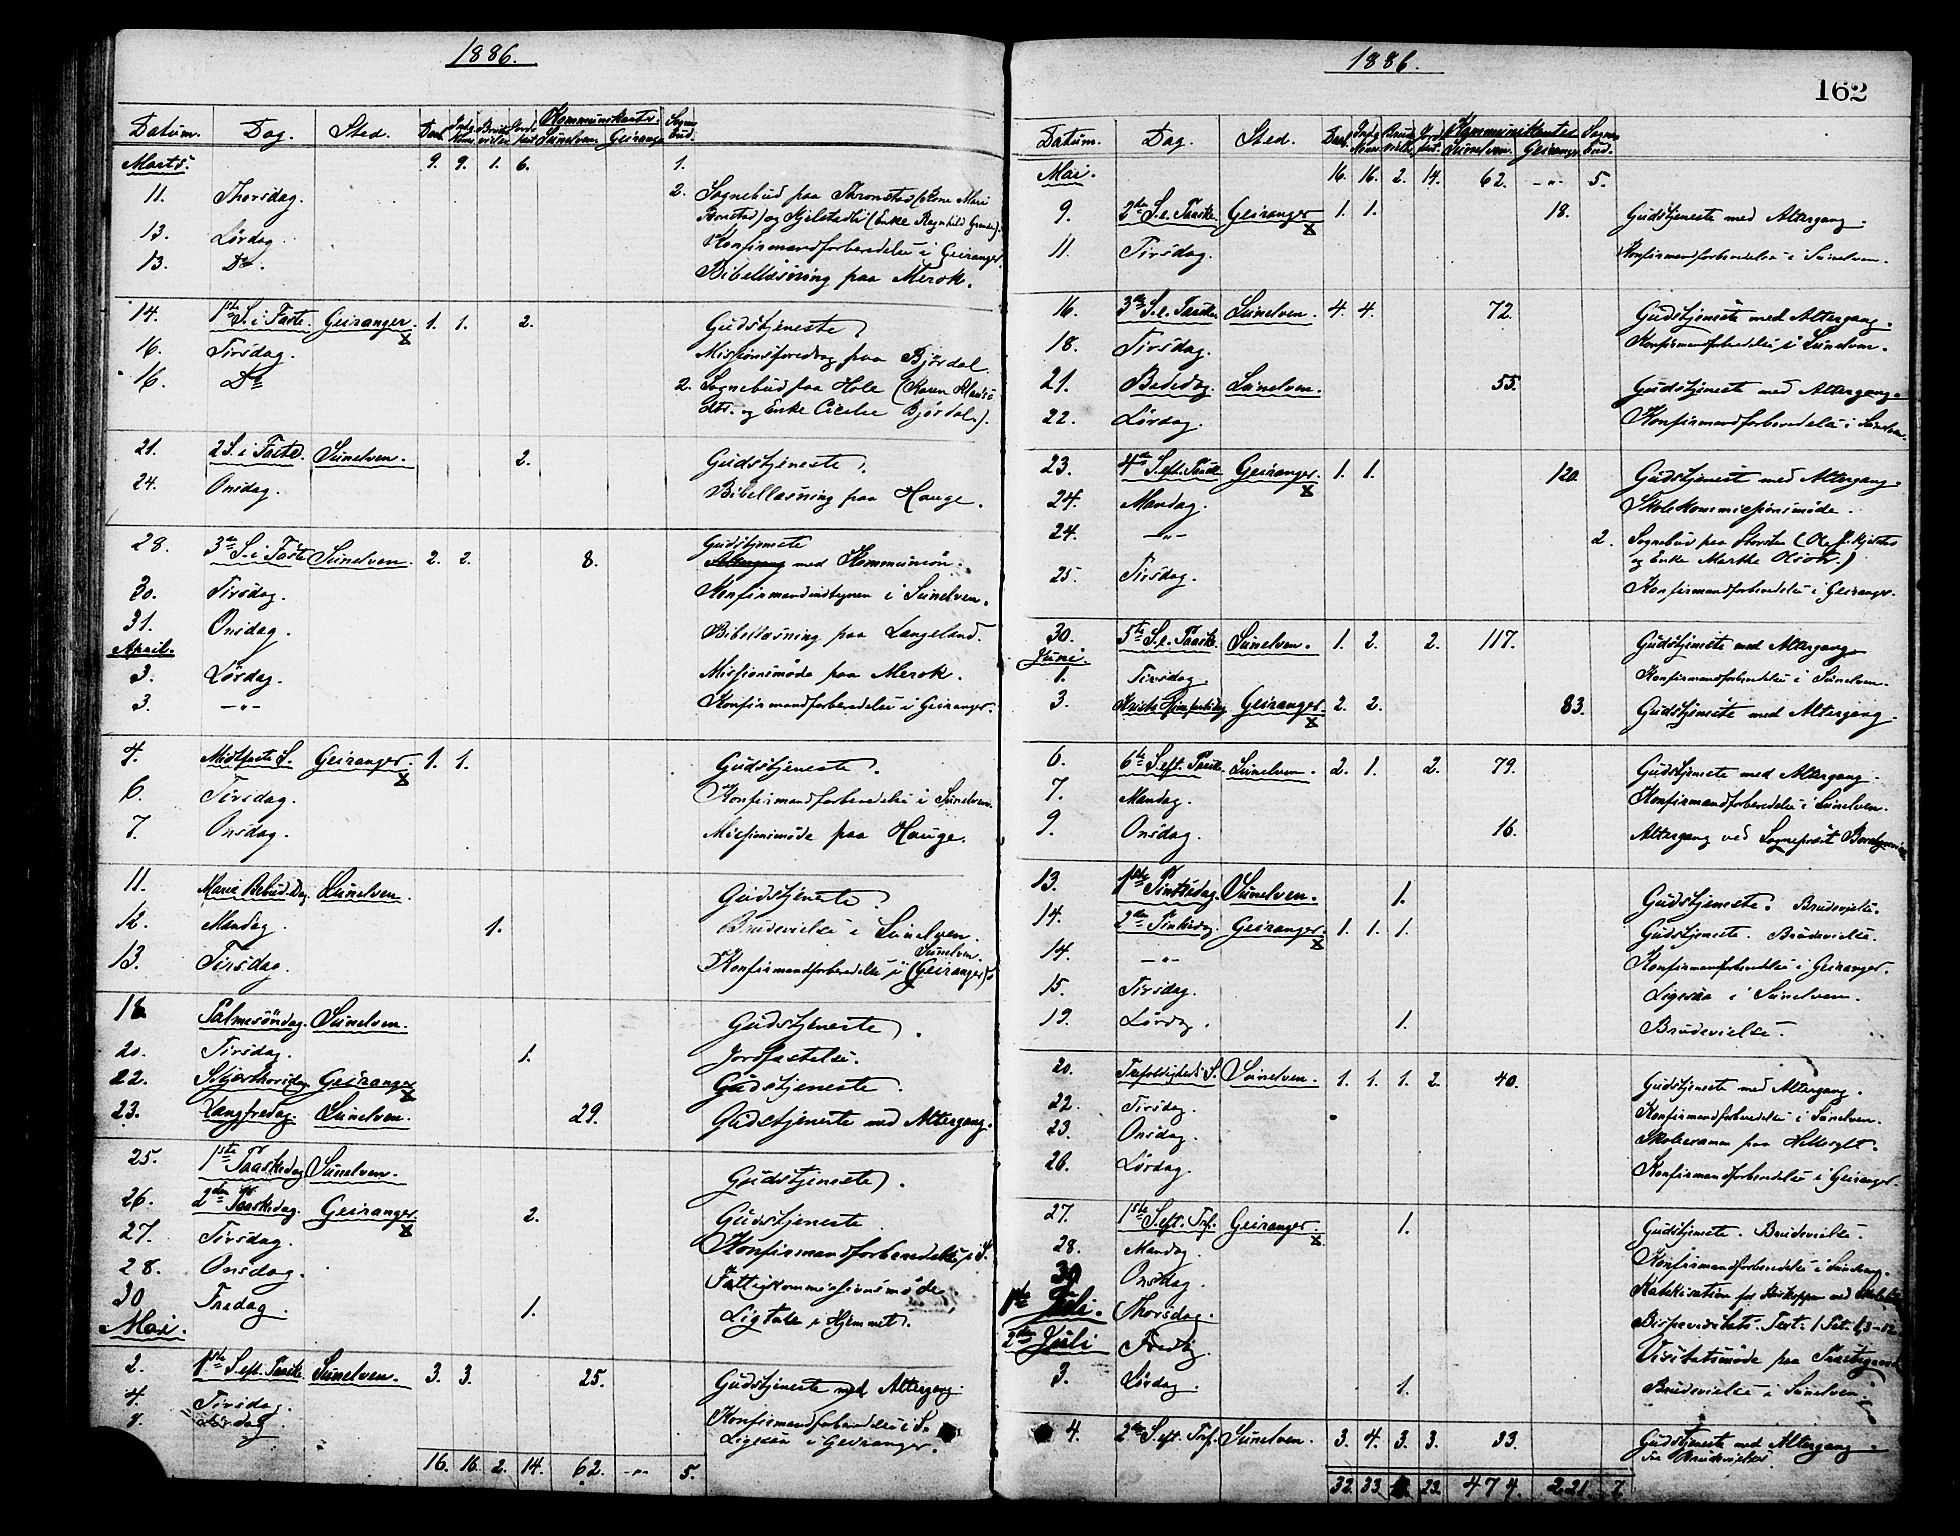 1886.
Datum. Dag. Sted. Daab Indg. Kone Brudevielse Jordfæst Kommunikanter Sunelven. Geiranger Sognebud.
Marts. 9. 9. 1. 6. 1.
11. Thorsdag. 2. Sognebud paa
og (Enke Ragnhild
13. Lørdag. Konfirmandforberedelse i Geiranger.
13. Do. Bibellæsning paa Merok.
14. 1ste S. i Faste. Geiranger. x 1. 1. 2. Gudstjeneste.
16. Tirsdag. Missionsforedrag paa Bjørdal.
16. Do 2. Sognebud paa Hole (Karen
dtr. og Enke Cicelie Bjørdal.).
21. 2 S. i Faste. Sunelven. 2. Gudstjeneste.
24. Onsdag. Bibellæsning paa Hauge.
28. 3die S. i Faste Sunelven. 2. 2. 8. Gudstjeneste
med Kommunion.
30. Tirsdag. i Sunelven.
31. Onsdag. Bibellæsning paa Langeland.
April.
3. Lørdag. Missionsmøde paa Merok.
3. -"- Konfirmandforberedelse i Geiranger.
4. Midtfaste S. Geiranger. x 1. 1. Gudstjeneste.
6. Tirsdag. Konfirmandforberedelse i Sunelven.
7. Onsdag. Missionsmøde paa Hauge.
11. Maria Bebud. Dag Sunelven. Gudstjeneste.
12. Mandag. 1. Brudevielse i Sunelven.
Sunelven.
13. Tirsdag. Konfirmandforberedelse i (Geiranger)
18 Palmesøndag. Sunelven. Gudstjeneste.
20. Tirsdag. 1. Jordfæstelse.
22. Skjærthorsdag Geiranger x Gudstjeneste.
23. Langfredag. Sunelven. 29. Gudstjeneste med Altergang.
25. 1ste Paaskedag Sunelven. Gudstjeneste.
26. 2den Paaskedag. Geiranger. x 2. Gudstjeneste
27. Tirsdag. Konfirmandforberedelse i S.
28. Onsdag. Fattigkommissionsmøde
30 Fredag. 1. Ligtale i Hjemmet.
Mai.
2. 1ste S. eft. Paaske. Sunelven. 3. 3. 25. Gudstjeneste med Altergang.
4. Tirsdag. Konfirmandforberedelse i S.
Lørdag. i Geiranger.
16. 16. 2. 14. 62. -"- 5.
1886.
162
Datum. Dag. Sted. Daab. Indg. Kone Brudevielse Jordfæst. Kommunikanter Sunelven. Geiranger. Sognebud.
Mai. 16. 16. 2. 14. 62. -"- 5.
9. 2den S. e. Paaske. Geiranger x 1. 1. 18. Gudstjeneste med Altergang.
11. Tirsdag. Konfirmandforberedelse i Sunelven.
16. 3die S. e. Paaske. Sunelven. 4. 4. 72. Gudstjeneste med Altergang.
18. Tirsdag. Konfirmandforberedelse i Sunelven.
21. Bededag. Sunelven. 55. Gudstjeneste med Altergang.
22. Lørdag. Konfirmandforberedelse i Sunelven.
23. 4de S. eft. Paaske Geiranger. x 1. 1. 120. Gudstjeneste med Altergang.
24. Mandag. Skolekommissionsmøde.
24. -"- 2. Sognebud paa
og Enke Marthe
25. Tirsdag. Konfirmandforberedelse i Geiranger.
30. 5te S. e. Paaske. Sunelven. 1. 2. 2. 117. Gudstjeneste med Altergang
Juni.
1. Tirsdag. Konfirmandforberedelse i Sunelven.
3. Kristi Himmelfartsdag Geiranger. x 2. 2. 83. Gudstjeneste med Altergang.
6. 6te S. eft. Paaske. Sunelven. 2. 1. 2. 79. Gudstjeneste med Altergang.
7. Mandag. Konfirmandforberedelse i Sunelven.
9. Onsdag. 16. Altergang ved Sogneprest
13. 1ste Pintsedag. Sunelven. 1. Gudstjeneste. Brudevielse.
14. 2den Pintsedag. Geiranger. x 1. 1. 1. Gudstjeneste. Brudevielse.
14. -"- Konfirmandforberedelse i Geiranger.
15. Tirsdag. i Sunelven.
19. Lørdag. 1. Brudevielse.
20. Trefoldigheds S. Sunelven. 1. 1. 1. 2. 40. Gudstjeneste med Altergang.
22. Tirsdag. Konfirmandforberedelse i Sunelven.
23. Onsdag. Skoleexamen paa Hellesylt.
26. Lørdag. Konfirmandforberedelse i Geiranger.
27. 1ste S. eft. Tref. Geiranger. x 1. Gudstjeneste. Brudevielse.
28. Mandag. Konfirmandforberedelse i
30 Onsdag. Katekisation for Biskoppen med
1ste Juli. Thorsdag. Bispevisitats. Text. 1 Pet.
2den Juli Fredag. Visitatsmøde paa
3. Lørdag. 1. Brudevielse i Sunelven.
4. 2den S. eft. Tref. Sunelven. 3. 4. 3. 3. 33. Gudstjeneste med Altergang.
Brudevielser.
32. 33. 23. 474. 221. 7.